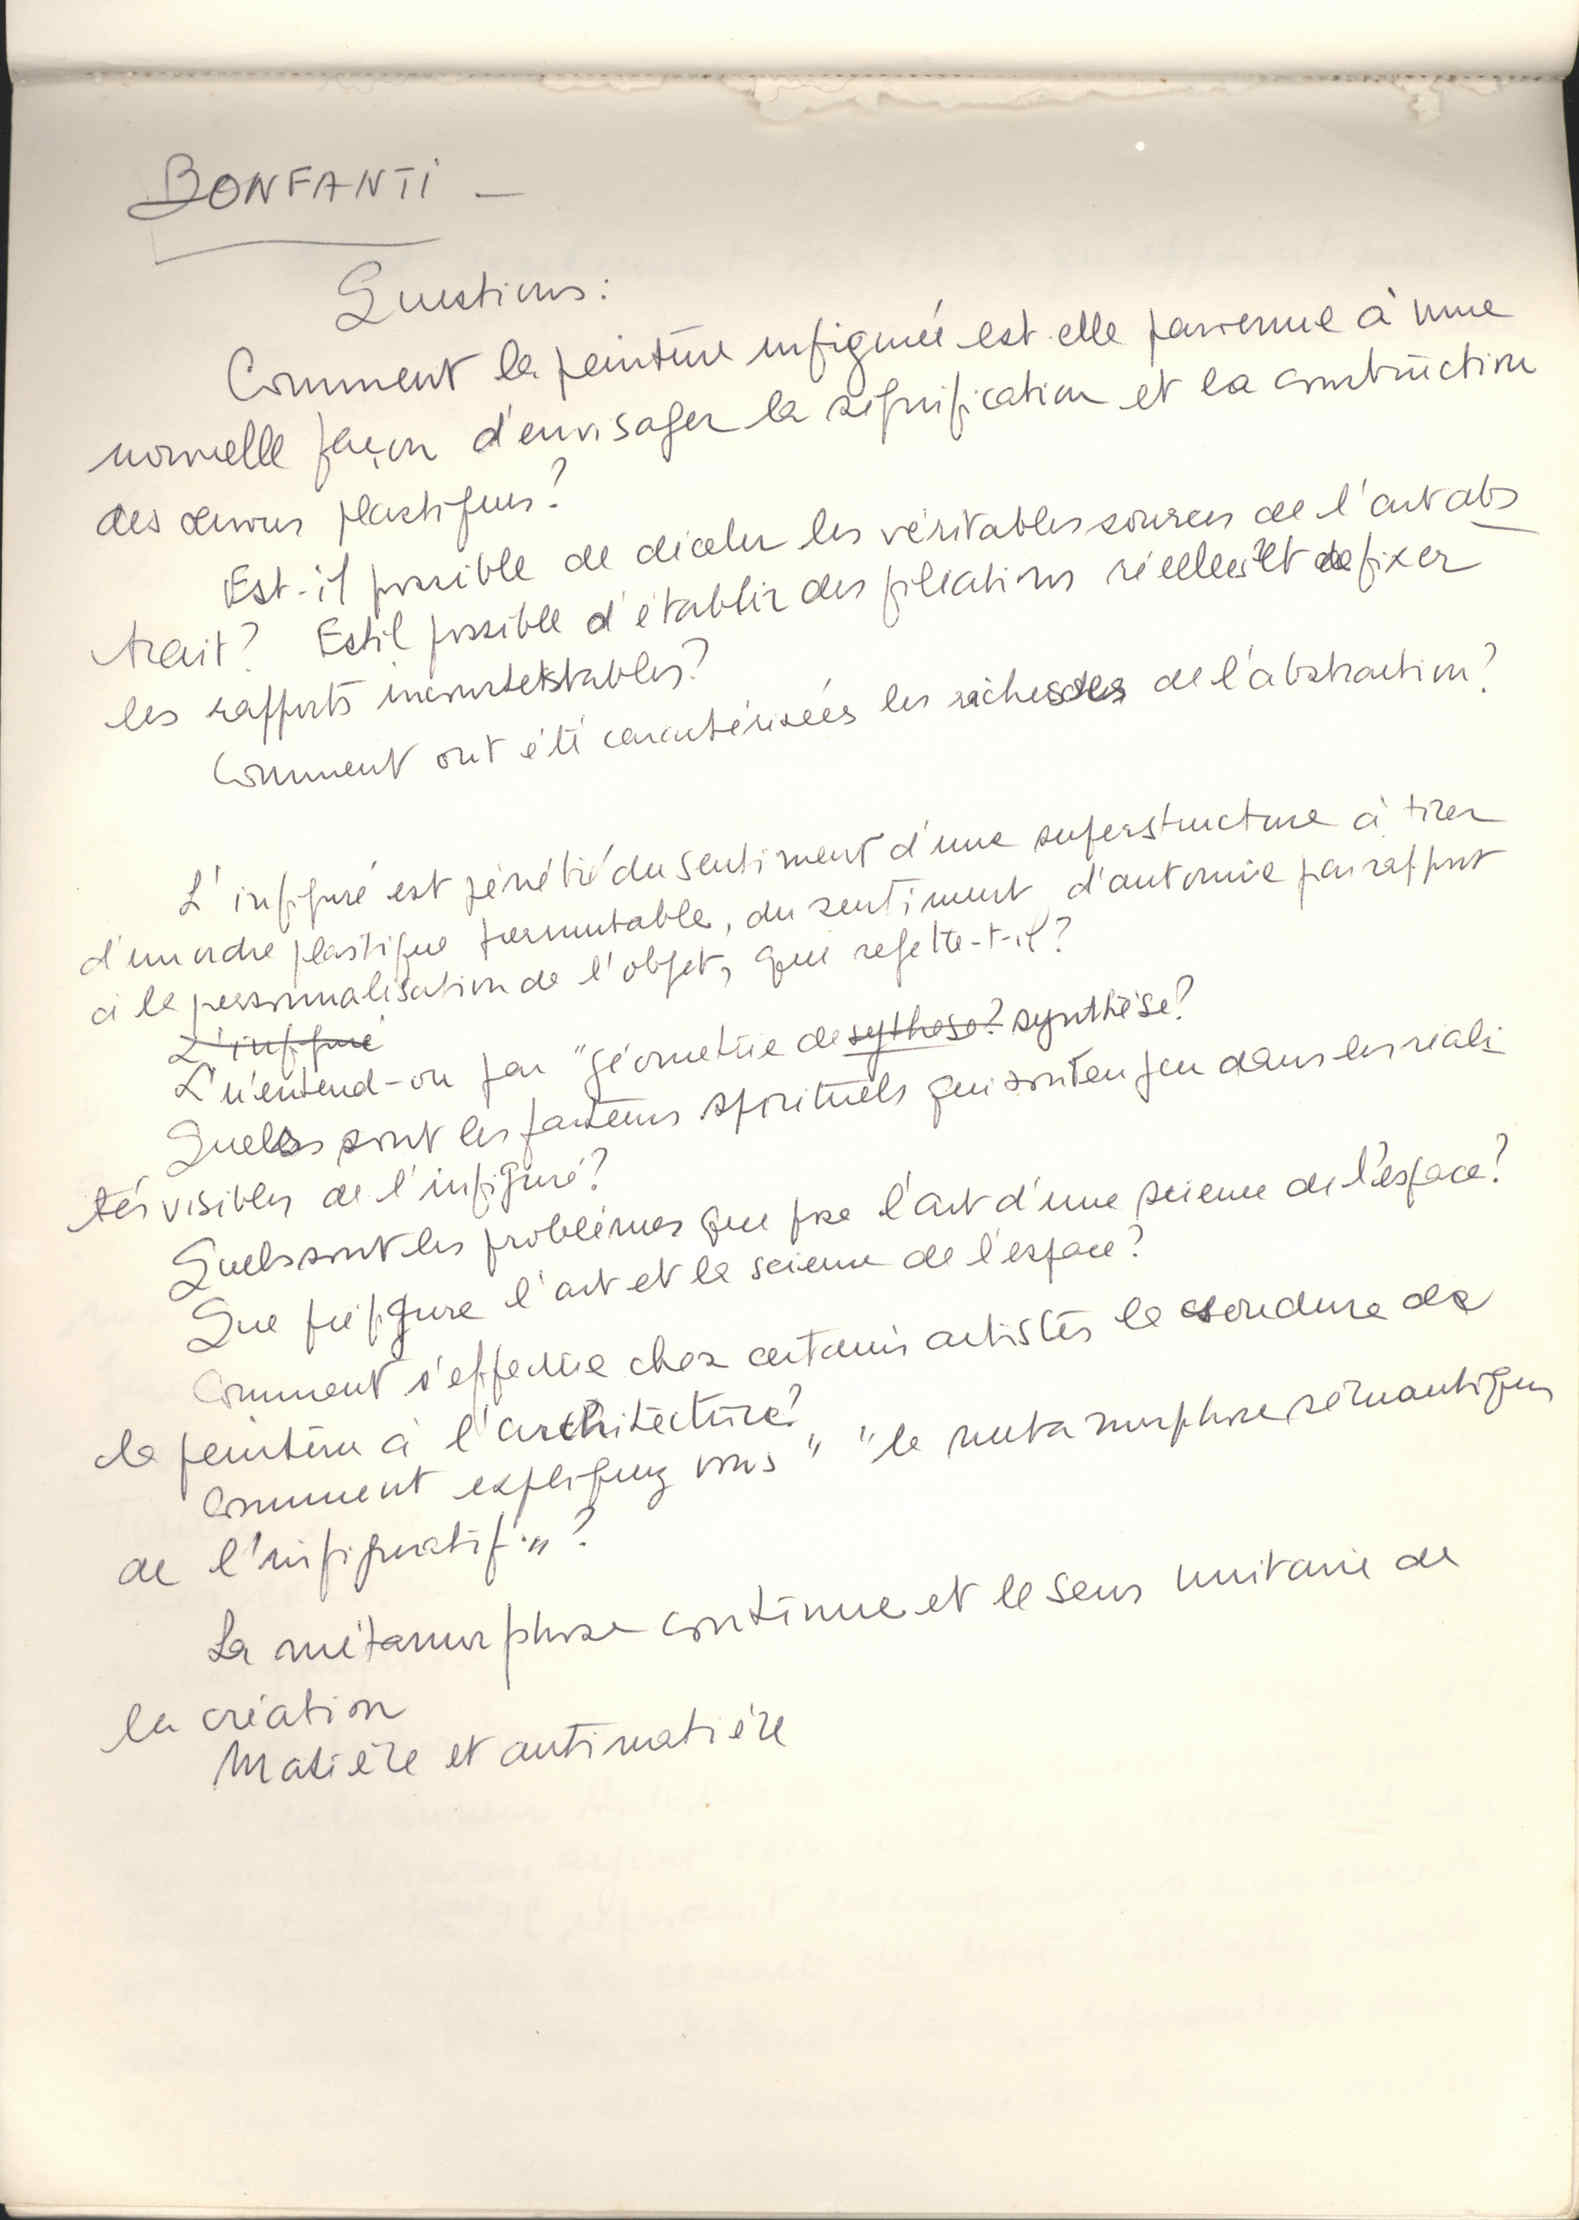 BONFANTI –
Questions:
Comment la peinture infigurée est-elle parvenue à une
nouvelle façon d'envisager la signification et la construction
des œuvres plastiques?
Est-il possible de déceler les véritables sources de l'art abs
trait? Est il possible d'établir des filiations réelles et de fixer
les rapports incontestables?
Comment ont été caractérisées les richesses de l'abstraction?
L'infiguré est pénétré du sentiment d'une superstructure à tirer
d'un ordre plastique permutable, du sentiment d'autonomie par rapport
à la personnalisation de l'objet, que rejette-t-il?
L'infiguré
L'n'entend-on par "géometrie de sythese? synthèse?
Quels sont les facteurs spirituels qui sont en jeu dans les réali
tés visibles de l'infiguré?
Quels sont les problémes que pose l'art d'une science de l'espace?
Que préfigure l'art et la science de l'espace?
Comment s'effectue chez certains artistes la soudure de
la peinture à l'architecture?
Comment expliquez vous " "la métamorphose sémantique
de l'infiguratif." ?
La métamorphose continue et le sens unitaire de
la création
Matiére et antimatiére